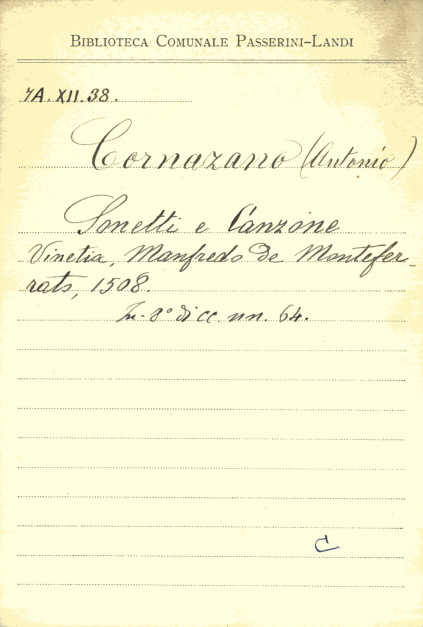 BIBLIOTECA COMUNALE PASSERINI-LANDI
7A. XII. 38.
Cornazano (Antonio)
Sonetti e Canzone
Vinetia, Manfredo de Montefer-
rato, 1508.
In-8° di cc. nn. 64.
C